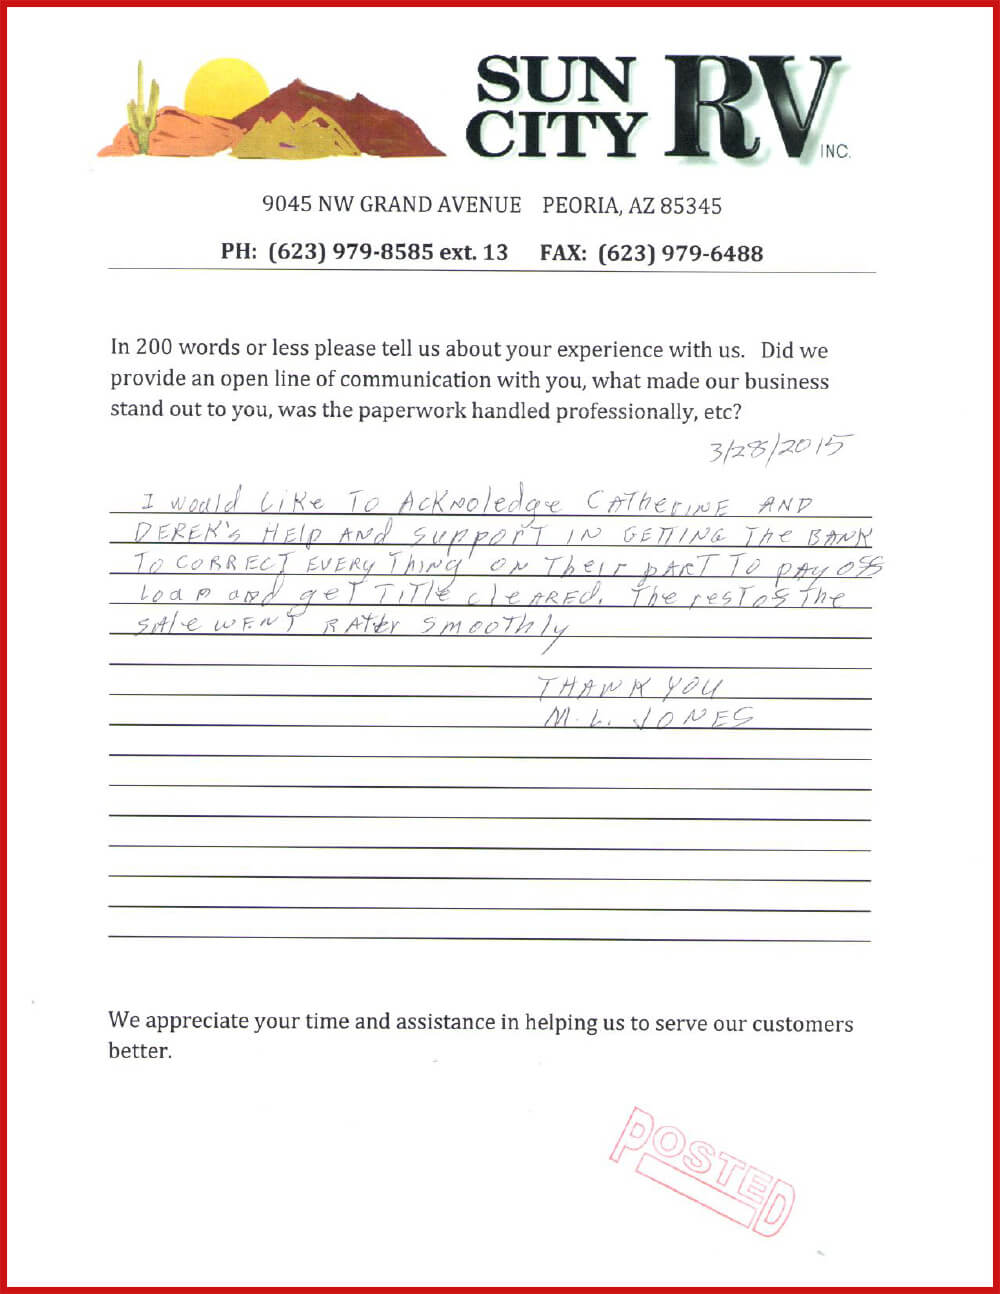 SUN
CITY RV INC.
9045 NW GRAND AVENUE PEORIA, AZ 85345
PH: (623) 979-8585 ext. 13 FAX: (623) 979-6488
In 200 words or less please tell us about your experience with us. Did we
provide an open line of communication with you, what made our business
stand out to you, was the paperwork handled professionally, etc?
3/28/2015
I would Like To Acknoledge CATHERINE AND
DEREK'S HELP AND SUPPORT IN GETTING The BANK
To CORRECT EVERY Thing ON Their PART To PAY OFF
LOAN and get TITLE CLEARED. The rest of The
SAle WENT RATER SMOOThly
THANK YOU
M. L. JONES
We appreciate your time and assistance in helping us to serve our customers
better.
POSTED